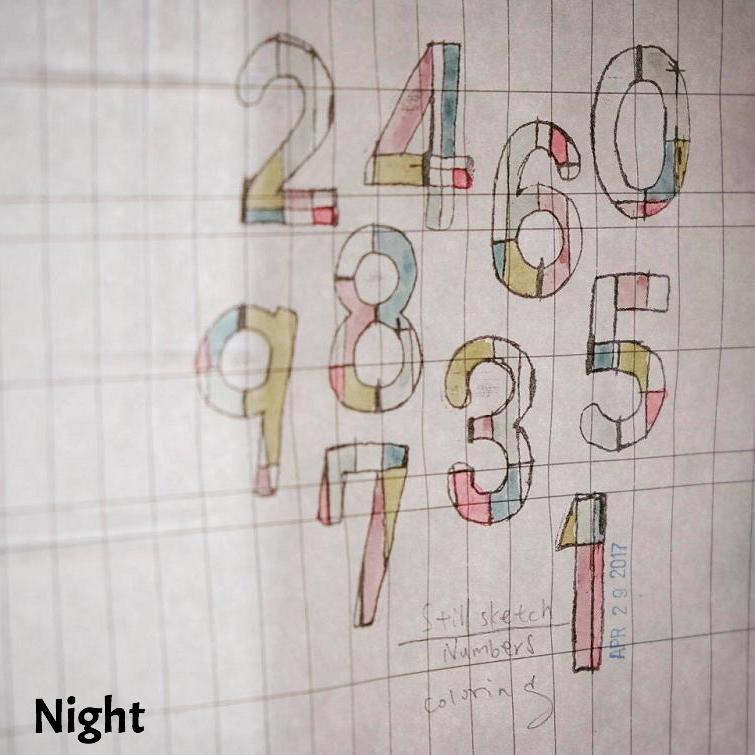 2 4 0
6
8
5
9
3
7
1
APR 29 2017
Still sketch
Numbers
coloring
Night